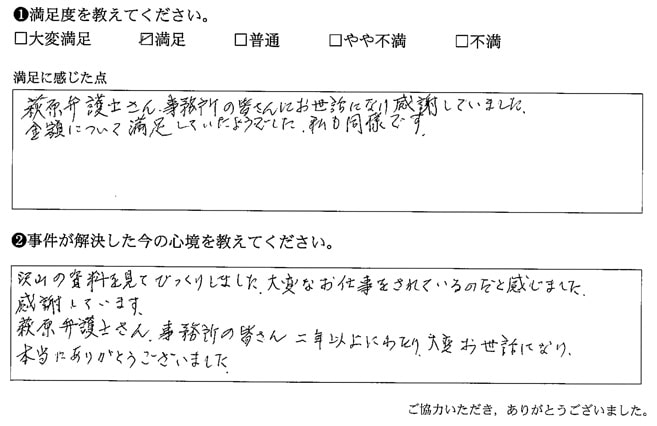 ❶満足度を教えてください。
□大変満足 ☑満足 □普通 □やや不満 □不満
満足に感じた点
萩原弁護士さん、事務所の皆さんにお世話になり感謝していました。
金額について満足していたようでした。私も同様です。
❷事件が解決した今の心境を教えてください。
沢山の資料を見てびっくりしました。大変なお仕事をされているのだと感じました。
感謝しています。
萩原弁護士さん、事務所の皆さん 二年以上にわたり、大変お世話になり、
本当にありがとうございました。
ご協力いただき，ありがとうございました。